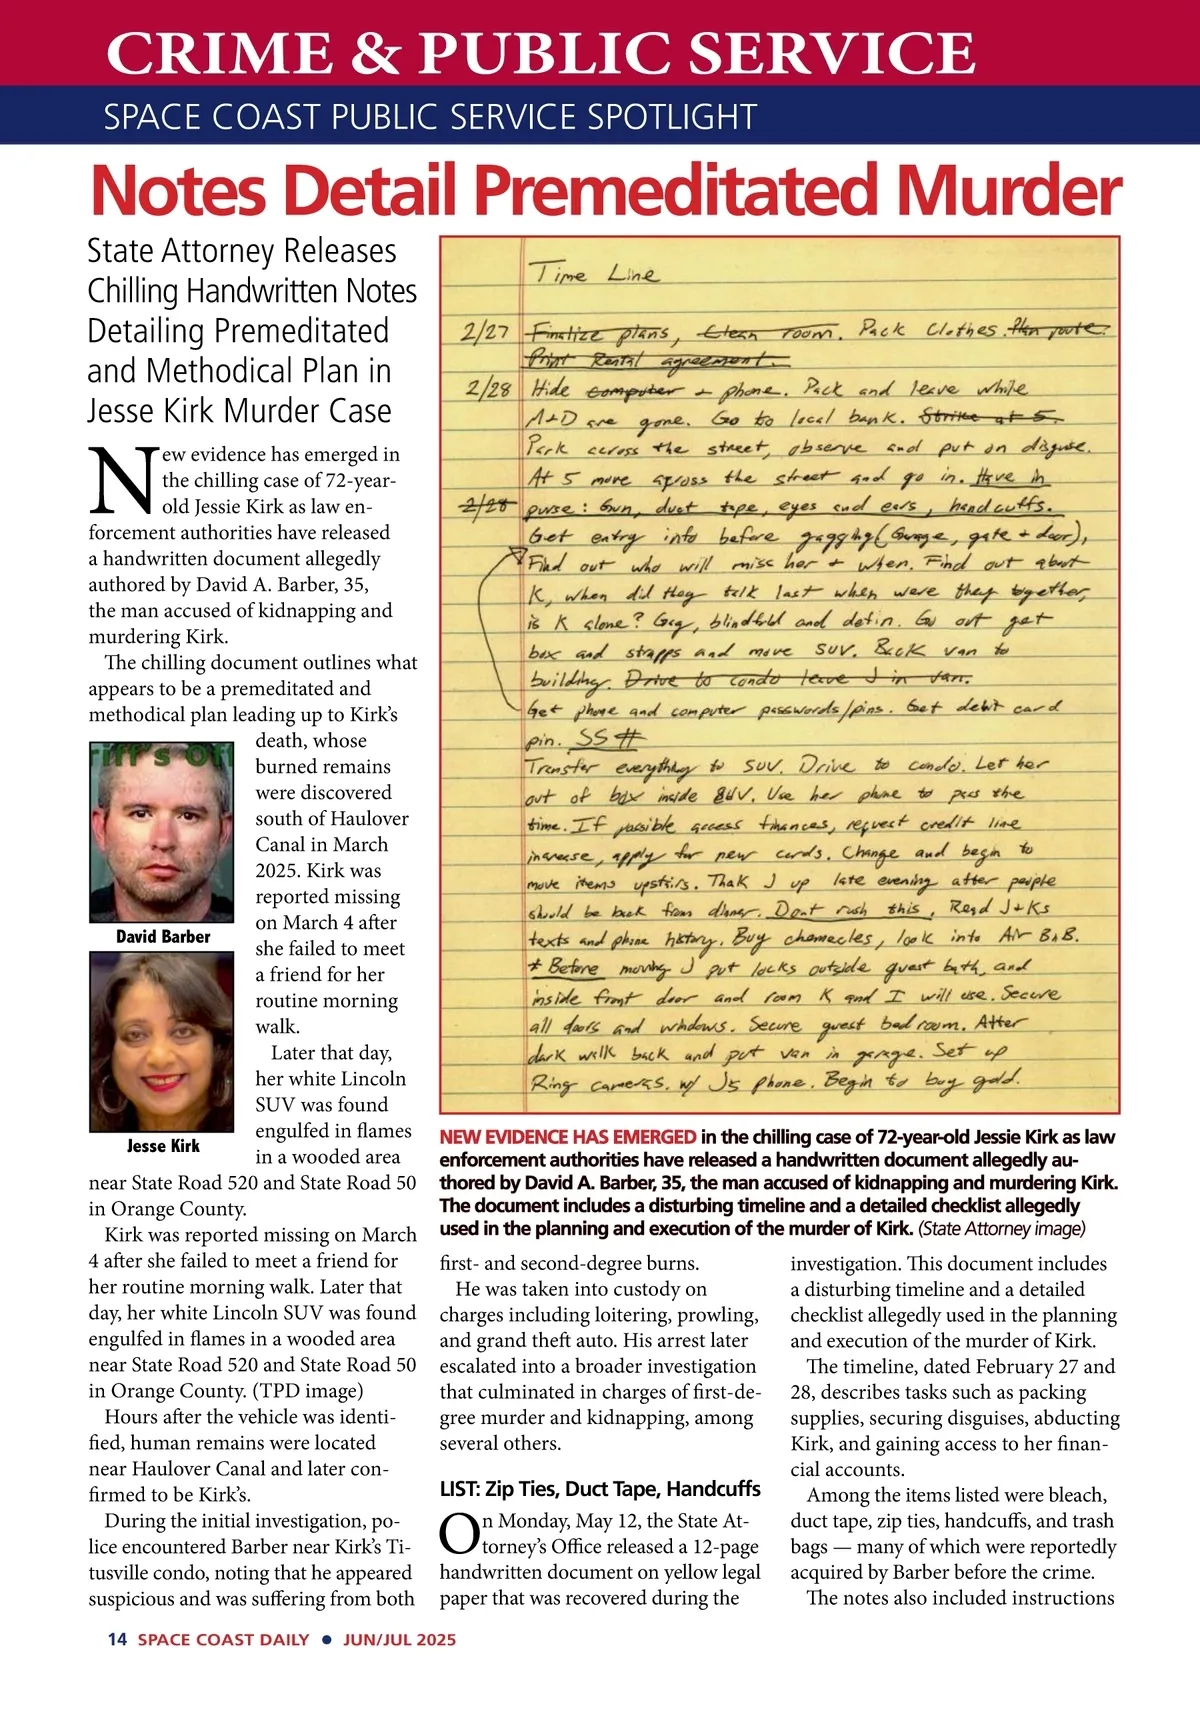 CRIME & PUBLIC SERVICE
SPACE COAST PUBLIC SERVICE SPOTLIGHT
Notes Detail Premeditated Murder
State Attorney Releases
Chilling Handwritten Notes
Detailing Premeditated
and Methodical Plan in
Jesse Kirk Murder Case
New evidence has emerged in
the chilling case of 72-year-
old Jessie Kirk as law en-
forcement authorities have released
a handwritten document allegedly
authored by David A. Barber, 35,
the man accused of kidnapping and
murdering Kirk.
The chilling document outlines what
appears to be a premeditated and
methodical plan leading up to Kirk's
death, whose
burned remains
were discovered
south of Haulover
Canal in March
2025. Kirk was
reported missing
on March 4 after
she failed to meet
a friend for her
routine morning
walk.
Later that day,
her white Lincoln
SUV was found
engulfed in flames
in a wooded area
near State Road 520 and State Road 50
in Orange County.
Kirk was reported missing on March
4 after she failed to meet a friend for
her routine morning walk. Later that
day, her white Lincoln SUV was found
engulfed in flames in a wooded area
near State Road 520 and State Road 50
in Orange County. (TPD image)
Hours after the vehicle was identi-
fied, human remains were located
near Haulover Canal and later con-
firmed to be Kirk's.
During the initial investigation, po-
lice encountered Barber near Kirk's Ti-
tusville condo, noting that he appeared
suspicious and was suffering from both
riff's Off
David Barber
Jesse Kirk
Time Line
2/27 Finalize plans, Clean room. Pack Clothes. Plan route.
Print Rental agreement.
2/28 Hide computer + phone. Pack and leave while
M+D are gone. Go to local bank. Strike at 5.
Park across the street, observe and put on disguse.
At 5 move across the street and go in. Have in
2/28 purse: Gun, duct tape, eyes and ears, handcuffs.
Get entry info before gagging (Garage, gate + door),
Find out who will miss her + when. Find out about
K, when did they talk last when were they together,
is K alone? Gag, blindfold and detin. Go out get
box and strapps and move SUV. Back van to
building. Drive to condo leave J in van.
Get phone and computer passwords/pins. Get debit card
pin. SS#
Transfer everything to SUV. Drive to condo. Let her
out of box inside SUV. Use her phone to pass the
time. If possible access finances, request credit line
increase, apply for new cards. Change and begin to
move items upstairs. Thak J up late evening after people
should be back from dinner. Dont rush this. Read J+Ks
texts and phone history. Buy chemecles, look into Air BnB.
* Before moving J put locks outside guest bath, and
inside front door and room K and I will use. Secure
all doors and windows. Secure guest bedroom. After
dark walk back and put van in garage. Set up
Ring cameras. w/ Js phone. Begin to buy gold.
NEW EVIDENCE HAS EMERGED in the chilling case of 72-year-old Jessie Kirk as law
enforcement authorities have released a handwritten document allegedly au-
thored by David A. Barber, 35, the man accused of kidnapping and murdering Kirk.
The document includes a disturbing timeline and a detailed checklist allegedly
used in the planning and execution of the murder of Kirk. (State Attorney image)
first- and second-degree burns.
He was taken into custody on
charges including loitering, prowling,
and grand theft auto. His arrest later
escalated into a broader investigation
that culminated in charges of first-de-
gree murder and kidnapping, among
several others.
LIST: Zip Ties, Duct Tape, Handcuffs
On Monday, May 12, the State At-
torney's Office released a 12-page
handwritten document on yellow legal
paper that was recovered during the
investigation. This document includes
a disturbing timeline and a detailed
checklist allegedly used in the planning
and execution of the murder of Kirk.
The timeline, dated February 27 and
28, describes tasks such as packing
supplies, securing disguises, abducting
Kirk, and gaining access to her finan-
cial accounts.
Among the items listed were bleach,
duct tape, zip ties, handcuffs, and trash
bags — many of which were reportedly
acquired by Barber before the crime.
The notes also included instructions
14 SPACE COAST DAILY ● JUN/JUL 2025